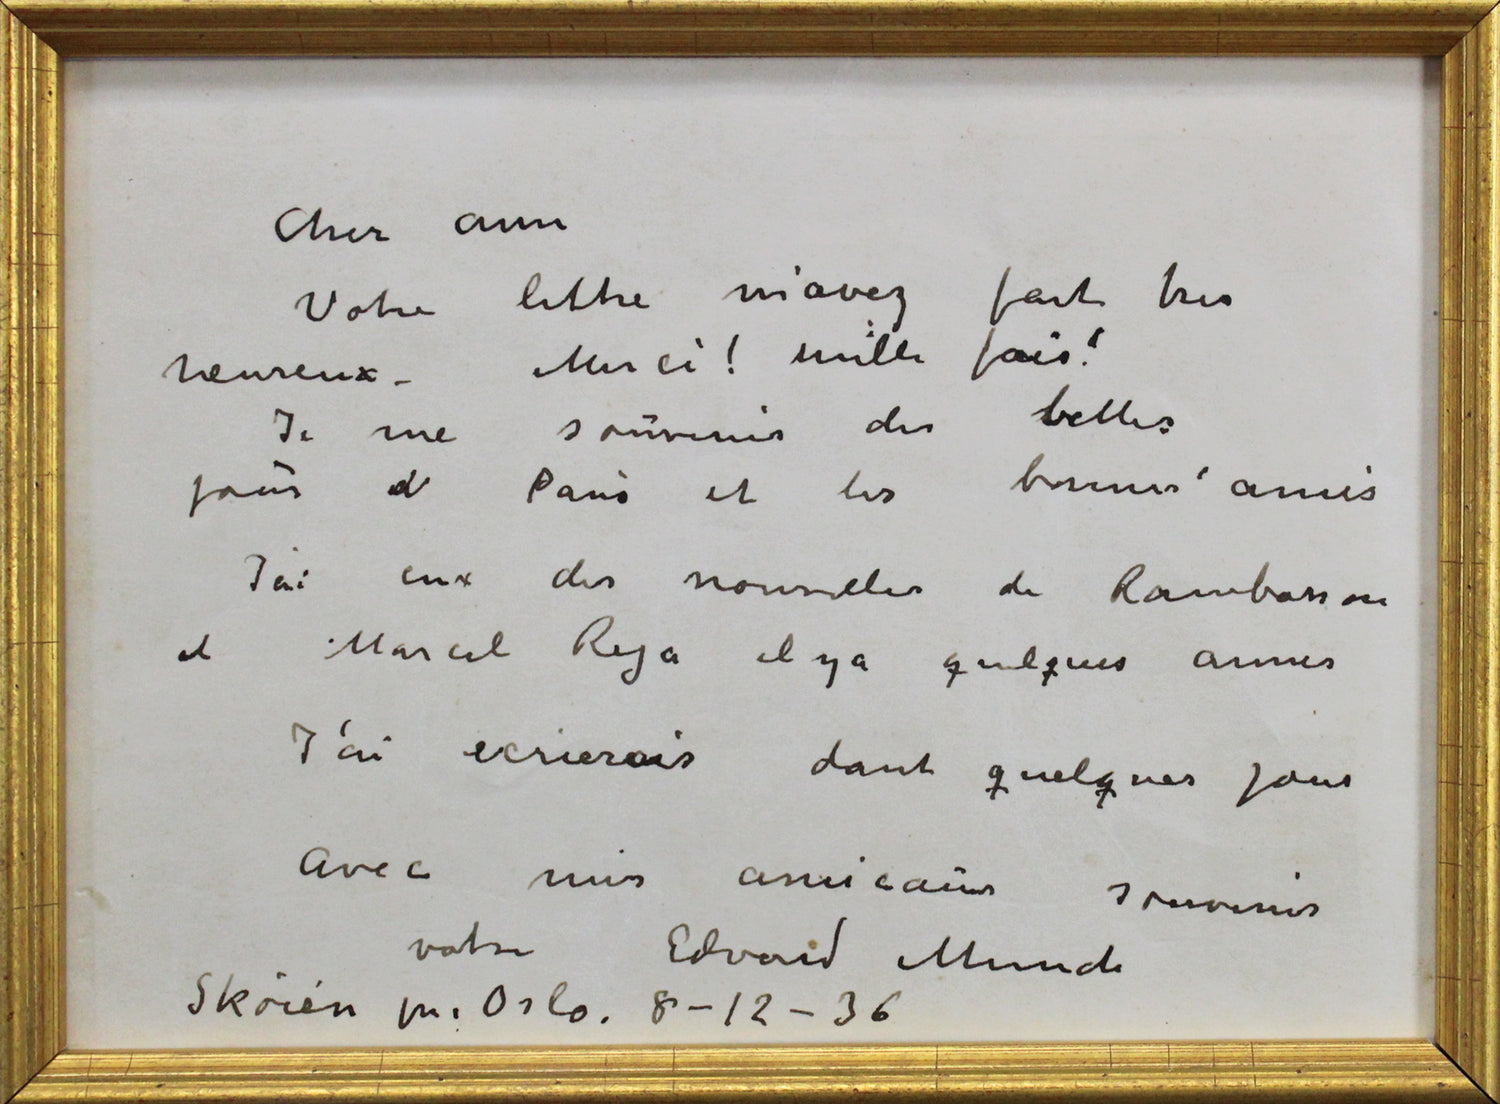 Cher ami
Votre lettre m'avez fait tres
heureux – Merci! mille fois!
Je me souvenis des belles
jours d Paris et les bonnes amis
J'ai eux des nouvelles de Rambosson
et Marcel Reja il ya quelques annes
J'ai ecrierais dant quelques jours
Avec mes amicaux souvenirs
votre Edvard Munch
Skøien pr. Oslo. 8-12-36